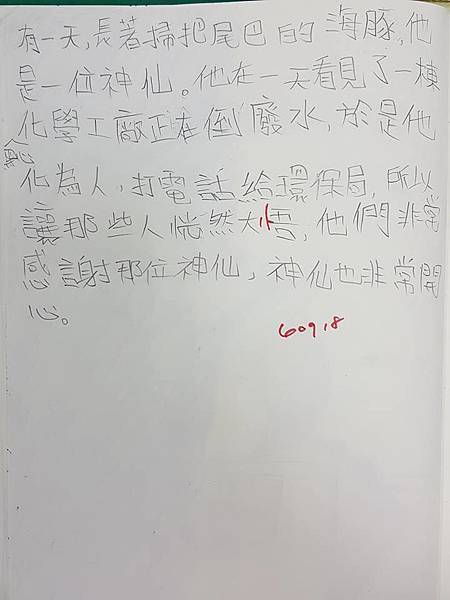 有一天,長著掃把尾巴的海豚,他
是一位神仙。他在一天看見了一棟
化學工廠正在倒廢水,於是他
化為人,打電話給環保局,所以
讓那些人恍然大悟,他們非常
感謝那位神仙,神仙也非常開
心。
60918